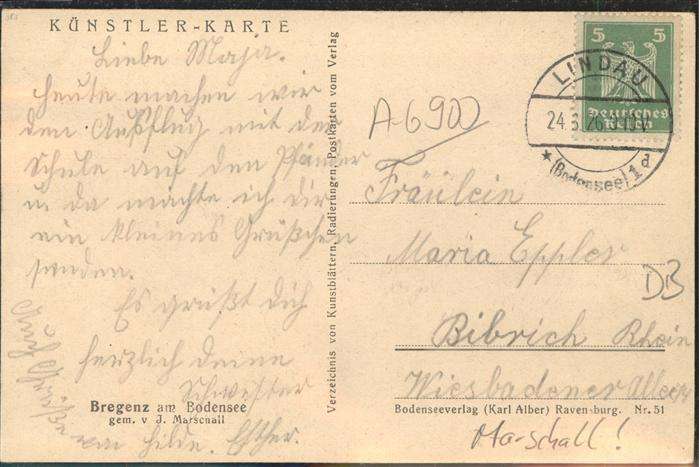 KÜNSTLER-KARTE
Liebe Maja.
Heute machen wir
den Ausflug mit der
Schule auf den Pfänder
u. da möchte ich dir
ein kleines Grüßchen
senden.
Es grüßt dich
herzlich deine
Schwester
Esther.
Auch Grüße
von Hilde.
Bregenz am Bodensee
gem. v J. Marschall
Verzeichnis von Kunstblättern, Radierungen, Postkarten vom Verlag
A-6900
5 5
Deutsches
Reich
LINDAU
24.6.26
(Bodensee) 1 d
Fräulein
Maria Eppler
DB
Bibrich Rhein
Wiesbadener Allee
Bodenseeverlag (Karl Alber) Ravensburg. Nr. 51
Marschall!